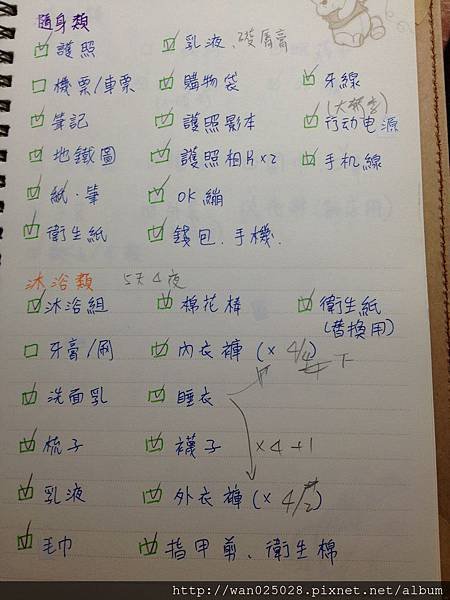 隨身類
護照 乳液、護唇膏
機票/車票 購物袋 牙線
筆記 護照影本 (大都會)行动电源
地鐵圖 護照相片x2 手机線
紙、筆 OK繃
衛生紙 錢包、手機.
沐浴類 5天4夜
沐浴組 棉花棒 衛生紙
(替換用)
牙膏/刷 內衣褲 (x 4/4) 下
洗面乳 睡衣
梳子 襪子 x4+1
乳液 外衣褲 (x 4/2)
毛巾 指甲剪、衛生棉
http://wan025028.pixnet.net/album